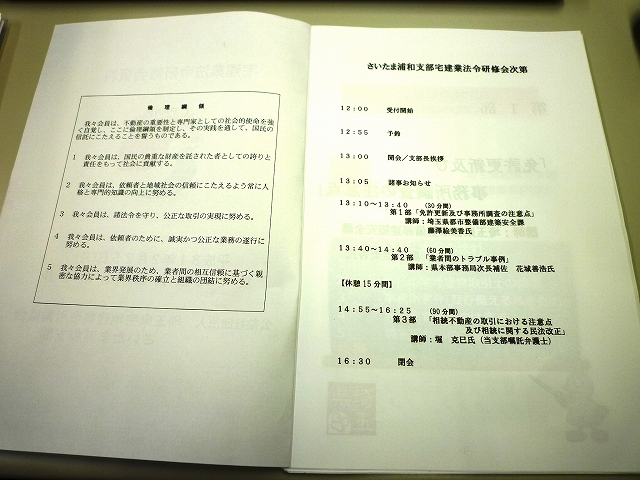 倫理綱領
我々会員は、不動産の重要性と専門家としての社会的使命を強
く自覚し、ここに倫理綱領を制定し、その実践を通して、国民の
信託にこたえることを誓うものである。
1 我々会員は、国民の貴重な財産を託された者としての誇りと
責任をもって社会に貢献する。
2 我々会員は、依頼者と地域社会の信頼にこたえるよう常に人
格と専門的知識の向上に努める。
3 我々会員は、諸法令を守り、公正な取引の実現に努める。
4 我々会員は、依頼者のために、誠実かつ公正な業務の遂行に
努める。
5 我々会員は、業界発展のため、業者間の相互信頼に基づく親
密な協力によって業界秩序の確立と組織の団結に努める。
さいたま浦和支部宅建業法令研修会次第
12:00 受付開始
12:55 予鈴
13:00 開会/支部長挨拶
13:05 諸事お知らせ
13:10~13:40 (30分間)
第1部「免許更新及び事務所調査の注意点」
講師:埼玉県都市整備部建築安全課
藤澤絵美香氏
13:40~14:40 (60分間)
第2部 「業者間のトラブル事例」
講師:県本部事務局次長補佐 花城善浩氏
【休憩15分間】
14:55~16:25 (90分間)
第3部 「相続不動産の取引における注意点
及び相続に関する民法改正」
講師:堀 克巳氏(当支部嘱託弁護士)
16:30 閉会